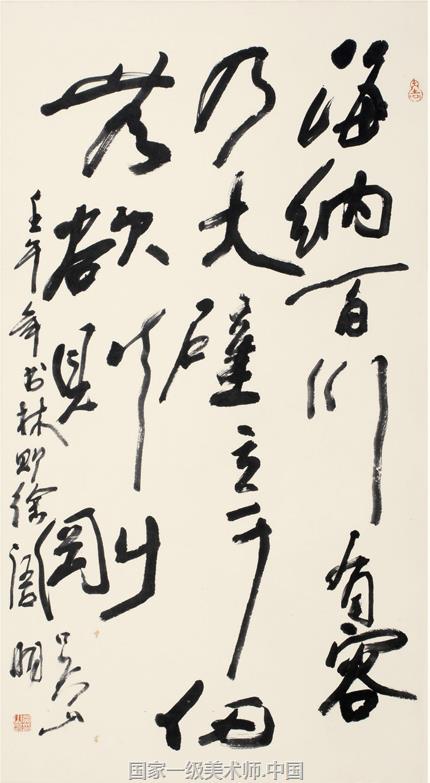 海纳百川有容
乃大壁立千仞
无欲则刚
壬午年书林则徐语
吴山明
国家一级美术师.中国